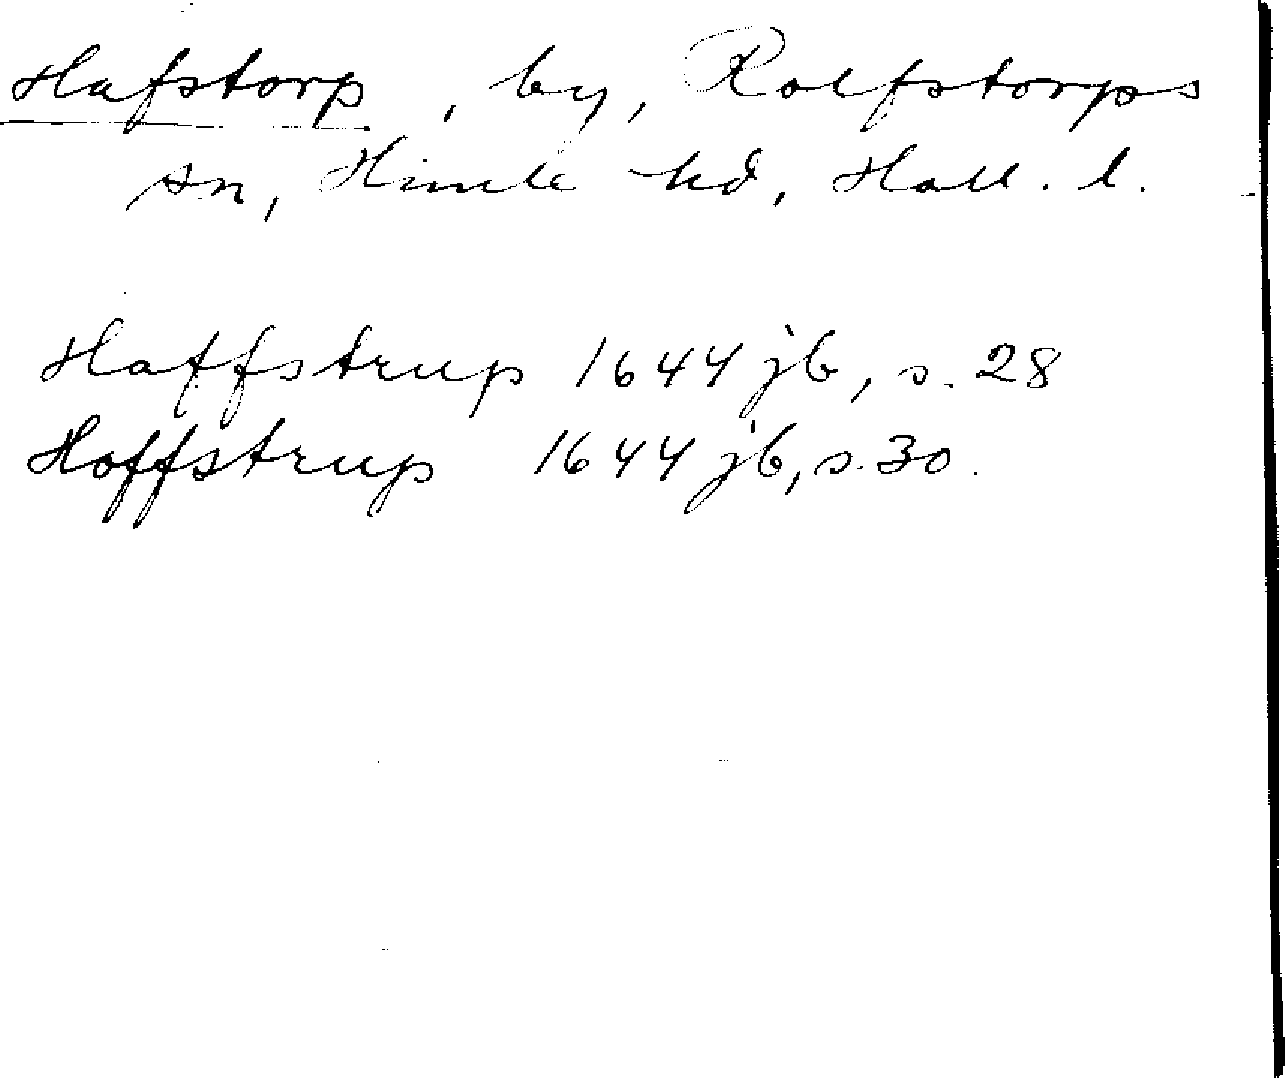 Hafstorp, by, Rolfstorps
sn, Himle hd, Hall. l.
Haffstrup 1644 jb, s. 28
Hoffstrup 1644 jb, s. 30.